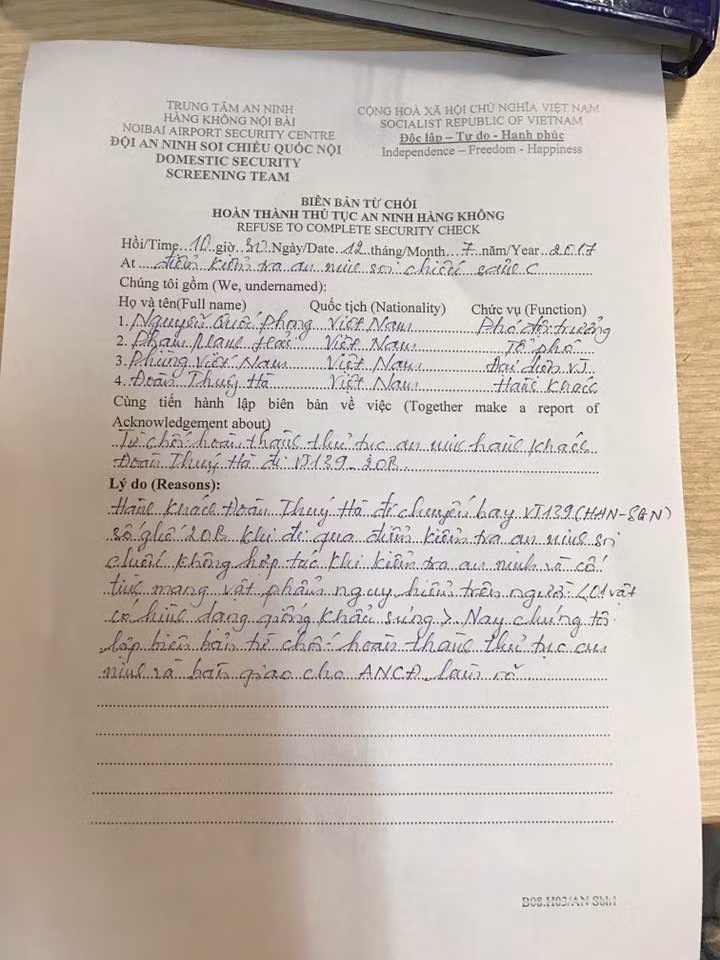 TRUNG TÂM AN NINH
HÀNG KHÔNG NỘI BÀI
NOIBAI AIRPORT SECURITY CENTRE
ĐỘI AN NINH SOI CHIẾU QUỐC NỘI
DOMESTIC SECURITY
SCREENING TEAM
CỘNG HOÀ XÃ HỘI CHỦ NGHĨA VIỆT NAM
SOCIALIST REPUBLIC OF VIETNAM
Độc lập – Tự do - Hạnh phúc
Independence – Freedom - Happiness
BIÊN BẢN TỪ CHỐI
HOÀN THÀNH THỦ TỤC AN NINH HÀNG KHÔNG
REFUSE TO COMPLETE SECURITY CHECK
Hồi/Time 10 giờ 30 Ngày/Date 12 tháng/Month 7 năm/Year 2017
At điểm kiểm tra an ninh soi chiếu sảnh C
Chúng tôi gồm (We, undernamed):
Họ và tên(Full name) Quốc tịch (Nationality) Chức vụ (Function)
1. Nguyễn Quốc Phong Việt Nam Phó đội trưởng
2. Phạm Mạnh Hải Việt Nam Tổ phó
3. Phùng Viết Nam Việt Nam Đại diện VJ
4. Đoàn Thuý Hà Việt Nam Hành khách
Cùng tiến hành lập biên bản về việc (Together make a report of
Acknowledgement about)
Từ chối hoàn thành thủ tục an ninh hành khách
Đoàn Thuý Hà đi VJ139 20B
Lý do (Reasons):
Hành khách Đoàn Thuý Hà đi chuyến bay VJ139 (HAN-SGN)
số ghế 20B khi đi qua điểm kiểm tra an ninh soi
chiếu không hợp tác khi kiểm tra an ninh và cố
tình mang vật phẩm nguy hiểm trên người <01 vật
có hình dạng giống khẩu súng>. Nay chúng tôi
lập biên bản từ chối hoàn thành thủ tục an
ninh và bàn giao cho ANCĐ làm rõ
B08.H03/AN